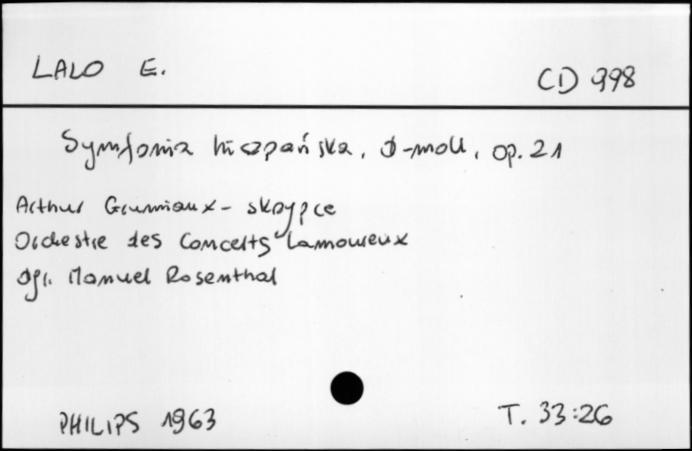 LALO E.
CD 998
Symfonia hiszpańska, d-moll, op. 21
Arthur Grumiaux - skrzypce
Orchestre des Concerts Lamoureux
dyr. Manuel Rosenthal
PHILIPS 1963
T. 33:26